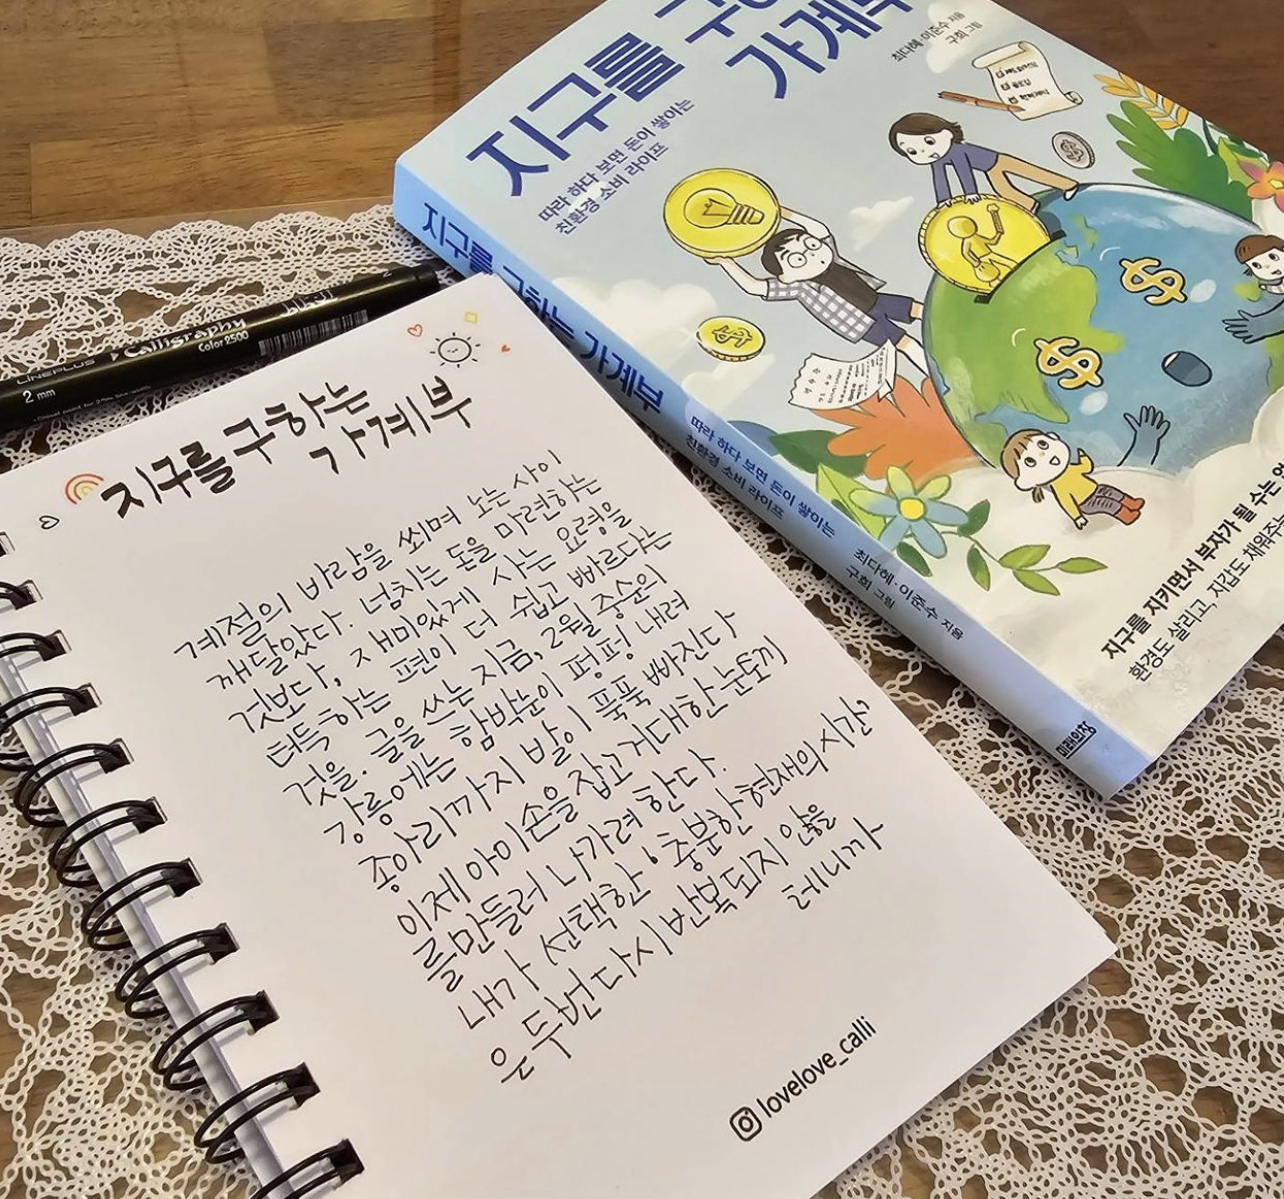 지구를 구하는
가계부
계절의 바람을 쐬며 노는 사이
깨달았다. 넘치는 돈을 마련하는
것보다, 재미있게 사는 요령을
터득하는 편이 더 쉽고 빠르다는
것을. 글을 쓰는 지금, 2월 중순의
강릉에는 함박눈이 펑펑 내려
종아리까지 발이 푹푹 빠진다
이제 아이손을 잡고 거대한 눈토끼
를 만들러 나가려 한다.
내가 선택한 '충분한 현재의 시간'
은 두번 다시 반복되지 않을
테니까
lovelove_calli
LINEPLUS Calligraphy
Color 2500
2 mm
지구를 구하는
가계부
따라 하다 보면 돈이 쌓이는
친환경 소비 라이프
최다혜·이준수 지음
구희 그림
지구를 구하는 가계부
따라 하다 보면 돈이 쌓이는
친환경 소비 라이프
최다혜·이준수 지음
구희 그림
미래의창
지구를 지키면서 부자가 될 수는
환경도 살리고, 지갑도 채워주